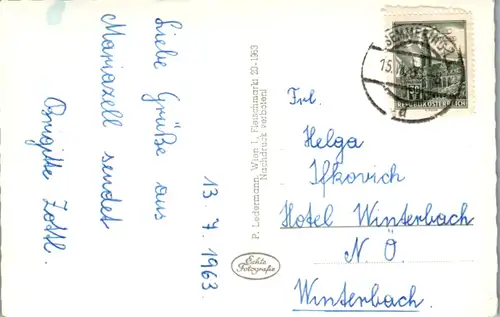 13. 7. 1963.
Liebe Grüße aus
Mariazell sendet
Brigitte Zottl.
P. Ledermann, Wien I, Fleischmarkt 20-1963
Nachdruck verboten!
Echte
Fotografie
SEMMERING
REPUBLIK ÖSTERREICH
Frl.
Helga
Ifkovich
Hotel Winterbach
N. Ö.
Winterbach.